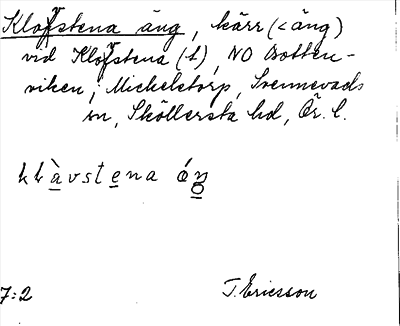 Klofstena äng, kärr (< äng)
vid Klofstena (t), NO Botten-
viken, Mickelstorp, Svennevads
sn, Sköllersta hd, Ör. l.
klàvstena
7:2 T. Ericsson